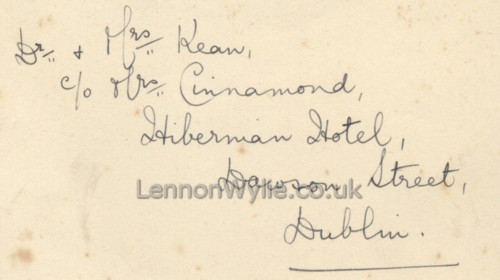 Dr. & Mrs. Kean,
c/o Mrs. Cinnamond,
Hibernian Hotel,
Dawson Street,
LennonWylie.co.uk
Dublin.